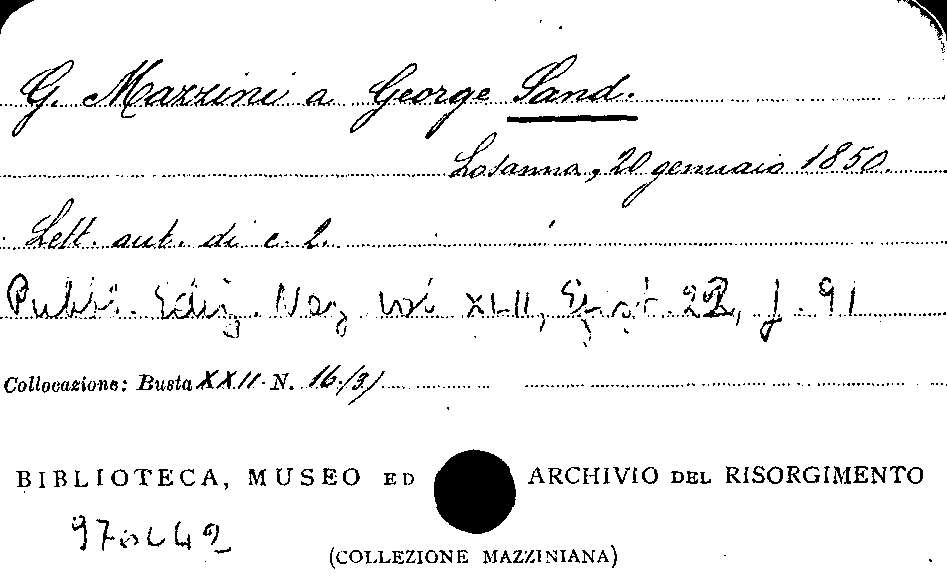 G. Mazzini a George Sand.
Losanna, 20 gennaio 1850.
Lett. aut. di c. 2.
Pubbl. Ediz. Naz. vol XLII, Epist. 22, p. 91
Collocazione: Busta XXII N. 16/3)
BIBLIOTECA, MUSEO ED ARCHIVIO DEL RISORGIMENTO
(COLLEZIONE MAZZINIANA)